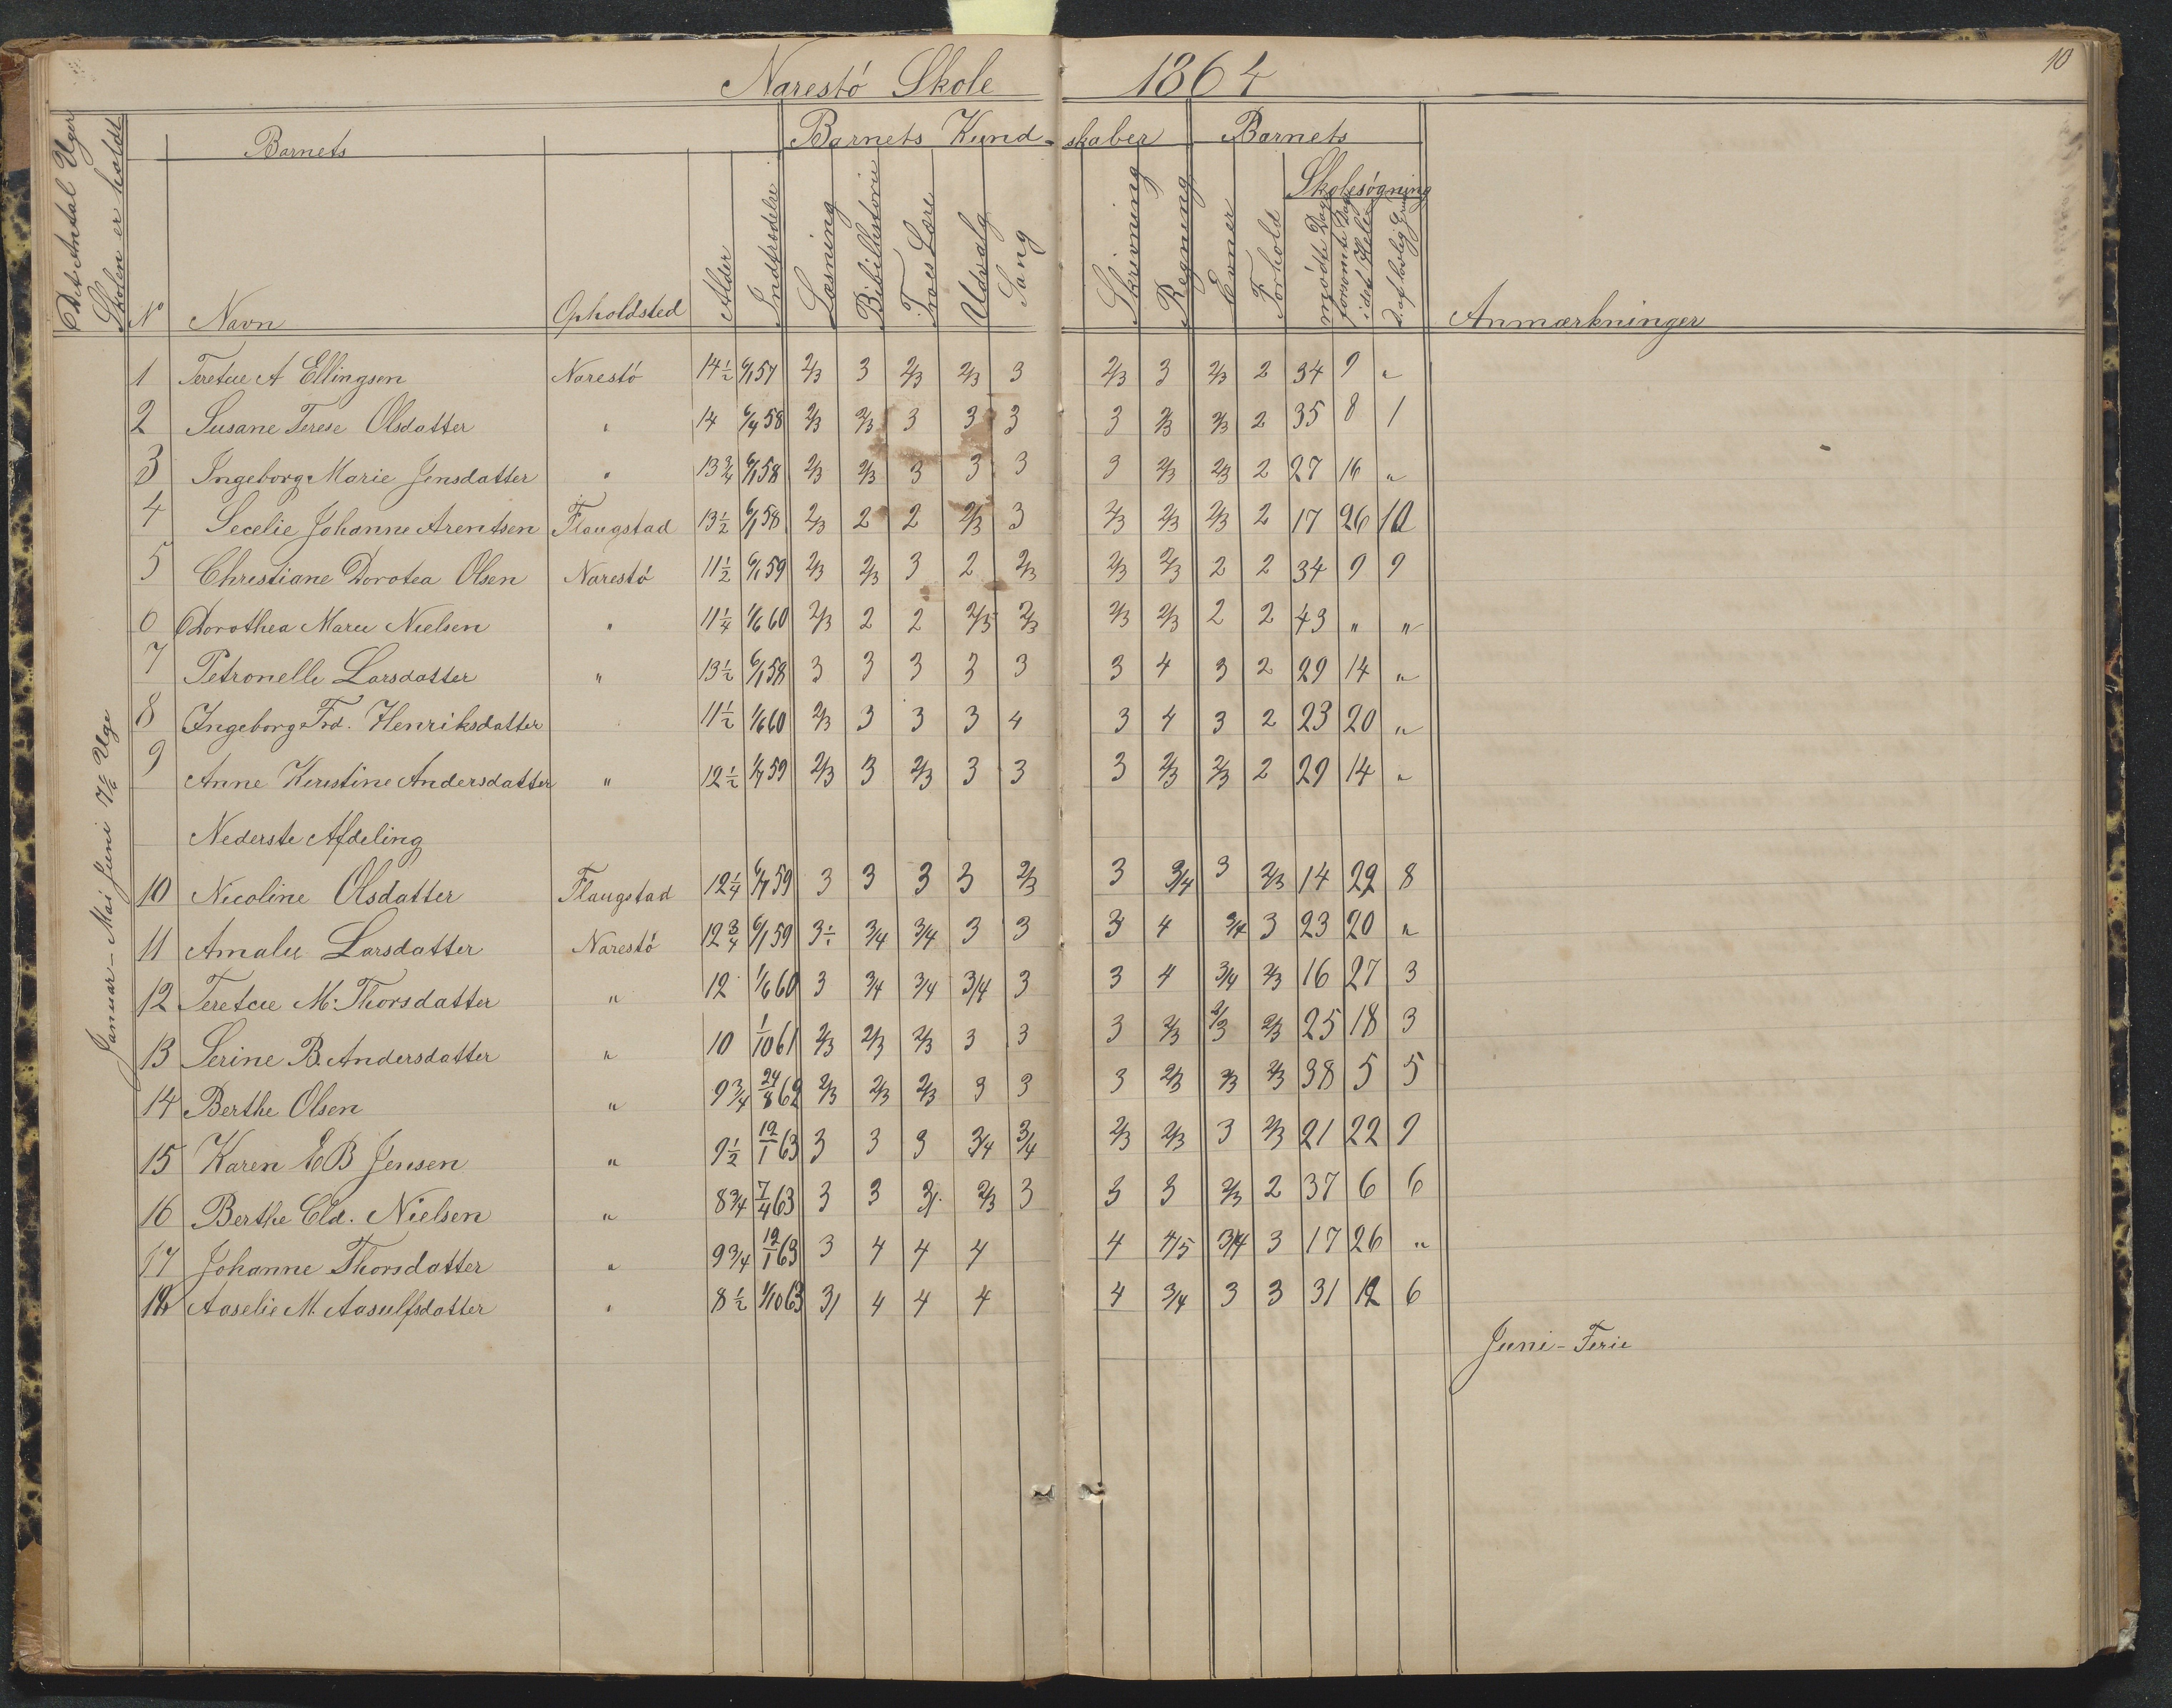 Narestö Skole 1864
10
Det Antal Uger
Skolen er holdt
Barnets
Barnets Kund-skaber
Barnets
Skolesøgning
No Navn Opholdsted Alder Indtrædelse Læsning Bibelhistorie Troes Lære Udvalg Sang Skrivning Regning Evner Forhold mødte Dage forsømte Dage i det Hele Anmærkninger
1 Teretue A Ellingsen Narestö 14½ 6/1 57 2/3 3 2/3 2/3 3 2/3 3 2/3 2 34 9 "
2 Susane Terese Olsdatter " 14 6/4 58 2/3 2/3 3 3 3 3 2/3 2/3 2 35 8 1
3 Ingeborg Marie Jensdatter " 13¾ 6/1 58 2/3 2/3 3 3 3 3 2/3 2/3 2 27 16 "
4 Secelie Johanne Arentsen Flaugstad 13½ 6/1 58 2/3 2 2 2/3 3 2/3 2/3 2/3 2 17 26 10
5 Christiane Dorotea Olsen Narestö 11½ 6/1 59 2/3 2/3 3 2 2/3 2/3 2/3 2 2 34 9 9
6 Dorothea Marie Nielsen " 11¼ 1/6 60 2/3 2 2 2/3 2/3 2/3 2/3 2 2 43 " "
7 Petronelle Larsdatter " 13½ 6/1 58 3 3 3 3 3 3 4 3 2 29 14 "
8 Ingeborg Frd. Henriksdatter 11½ 1/6 60 2/3 3 3 3 4 3 4 3 2 23 20 "
9 Anne Kiristine Andersdatter " 12½ 1/7 59 2/3 3 2/3 3 3 3 2/3 2/3 2 29 14 "
Nederste Afdeling
10 Nicoline Olsdatter Flaugstad 12¼ 6/7 59 3 3 3 3 2/3 3 3/4 3 2/3 14 29 8
11 Amalie Larsdatter Narestö 12¾ 6/1 59 3 3/4 3/4 3 3 3 4 3/4 3 23 20 "
12 Teretcie M. Thorsdatter " 12 1/6 60 3 3/4 3/4 3/4 3 3 4 3/4 2/3 16 27 3
13 Serine B. Andersdatter " 10 1/10 61 2/3 2/3 2/3 3 3 3 2/3 2/3 2/3 25 18 3
14 Berthe Olsen " 9¾ 24/8 62 2/3 2/3 2/3 3 3 3 2/3 2/3 2/3 38 5 5
15 Karen E B Jensen " 9½ 12/1 63 3 3 3 3/4 3/4 2/3 2/3 3 2/3 21 22 9
16 Berthe Eld. Nielsen " 8¾ 7/4 63 3 3 3/. 2/3 3 3 3 2/3 2 37 6 6
17 Johanne Thorsdatter " 9¾ 12/1 63 3 4 4 4 4 4/5 3/4 3 17 26 "
18 Aaselie M. Aasulfsdatter " 8½ 1/10 63 3/ 4 4 4 4 3/4 3 3 31 12 6
Januar - Mai Juni 7 1/6 Uge
Juni - Ferie